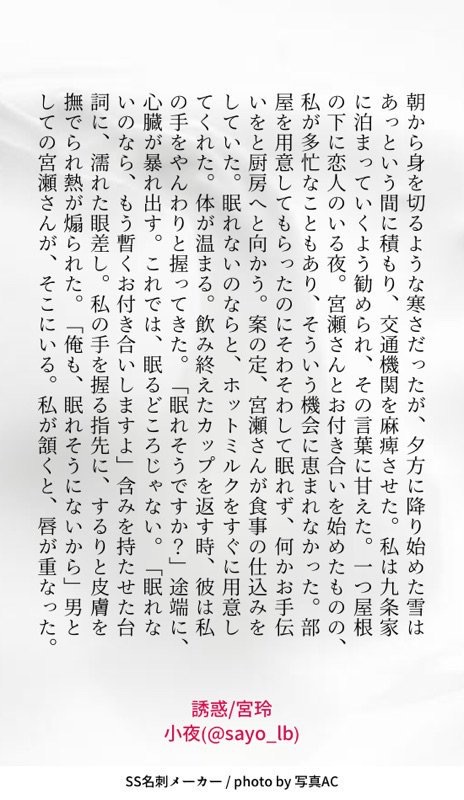 朝から身を切るような寒さだったが、夕方に降り始めた雪は
あっという間に積もり、交通機関を麻痺させた。私は九条家
に泊まっていくよう勧められ、その言葉に甘えた。一つ屋根
の下に恋人のいる夜。宮瀬さんとお付き合いを始めたものの、
私が多忙なこともあり、そういう機会に恵まれなかった。部
屋を用意してもらったのにそわそわして眠れず、何かお手伝
いをと厨房へと向かう。案の定、宮瀬さんが食事の仕込みを
していた。眠れないのならと、ホットミルクをすぐに用意し
てくれた。体が温まる。飲み終えたカップを返す時、彼は私
の手をやんわりと握ってきた。「眠れそうですか？」途端に、
心臓が暴れ出す。これでは、眠るどころじゃない。「眠れな
いのなら、もう暫くお付き合いしますよ」含みを持たせた台
詞に、濡れた眼差し。私の手を握る指先に、するりと皮膚を
撫でられ熱が煽られた。「俺も、眠れそうにないから」男と
しての宮瀬さんが、そこにいる。私が頷くと、唇が重なった。
誘惑/宮玲
小夜(@sayo_lb)
SS名刺メーカー / photo by 写真AC